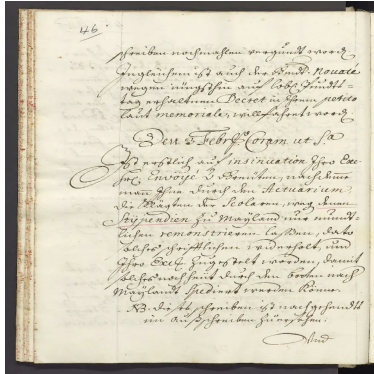 146.
schreiben nochmahlen vergundt word
Ingleichem ist auch der Hr. Novata
wegen jüngsthin auf lobl. Pundts-
tag erhaltnen Decret in Ihrem petito
laut memorials, willfahret word
Den 3 Febr. Coram ut S.a
Ist erstlich auf insinuation Ihro Exc.
Envoyé nach deme
mann Ihne durch den Actuarium
die der Scolaren, weg denen
Stipendien zu Mayland nur mundt
lichen remonstrieren lassen, dato
solches schrifftlichen widerholt, und
Ihro Exc. zugestelt worden, damit
solches nach heüt durch den botten nach
Maylandt spediert werden könne.
NB. dieses schreiben ist nachgehendts
im außschreiben zuersehen.
Und